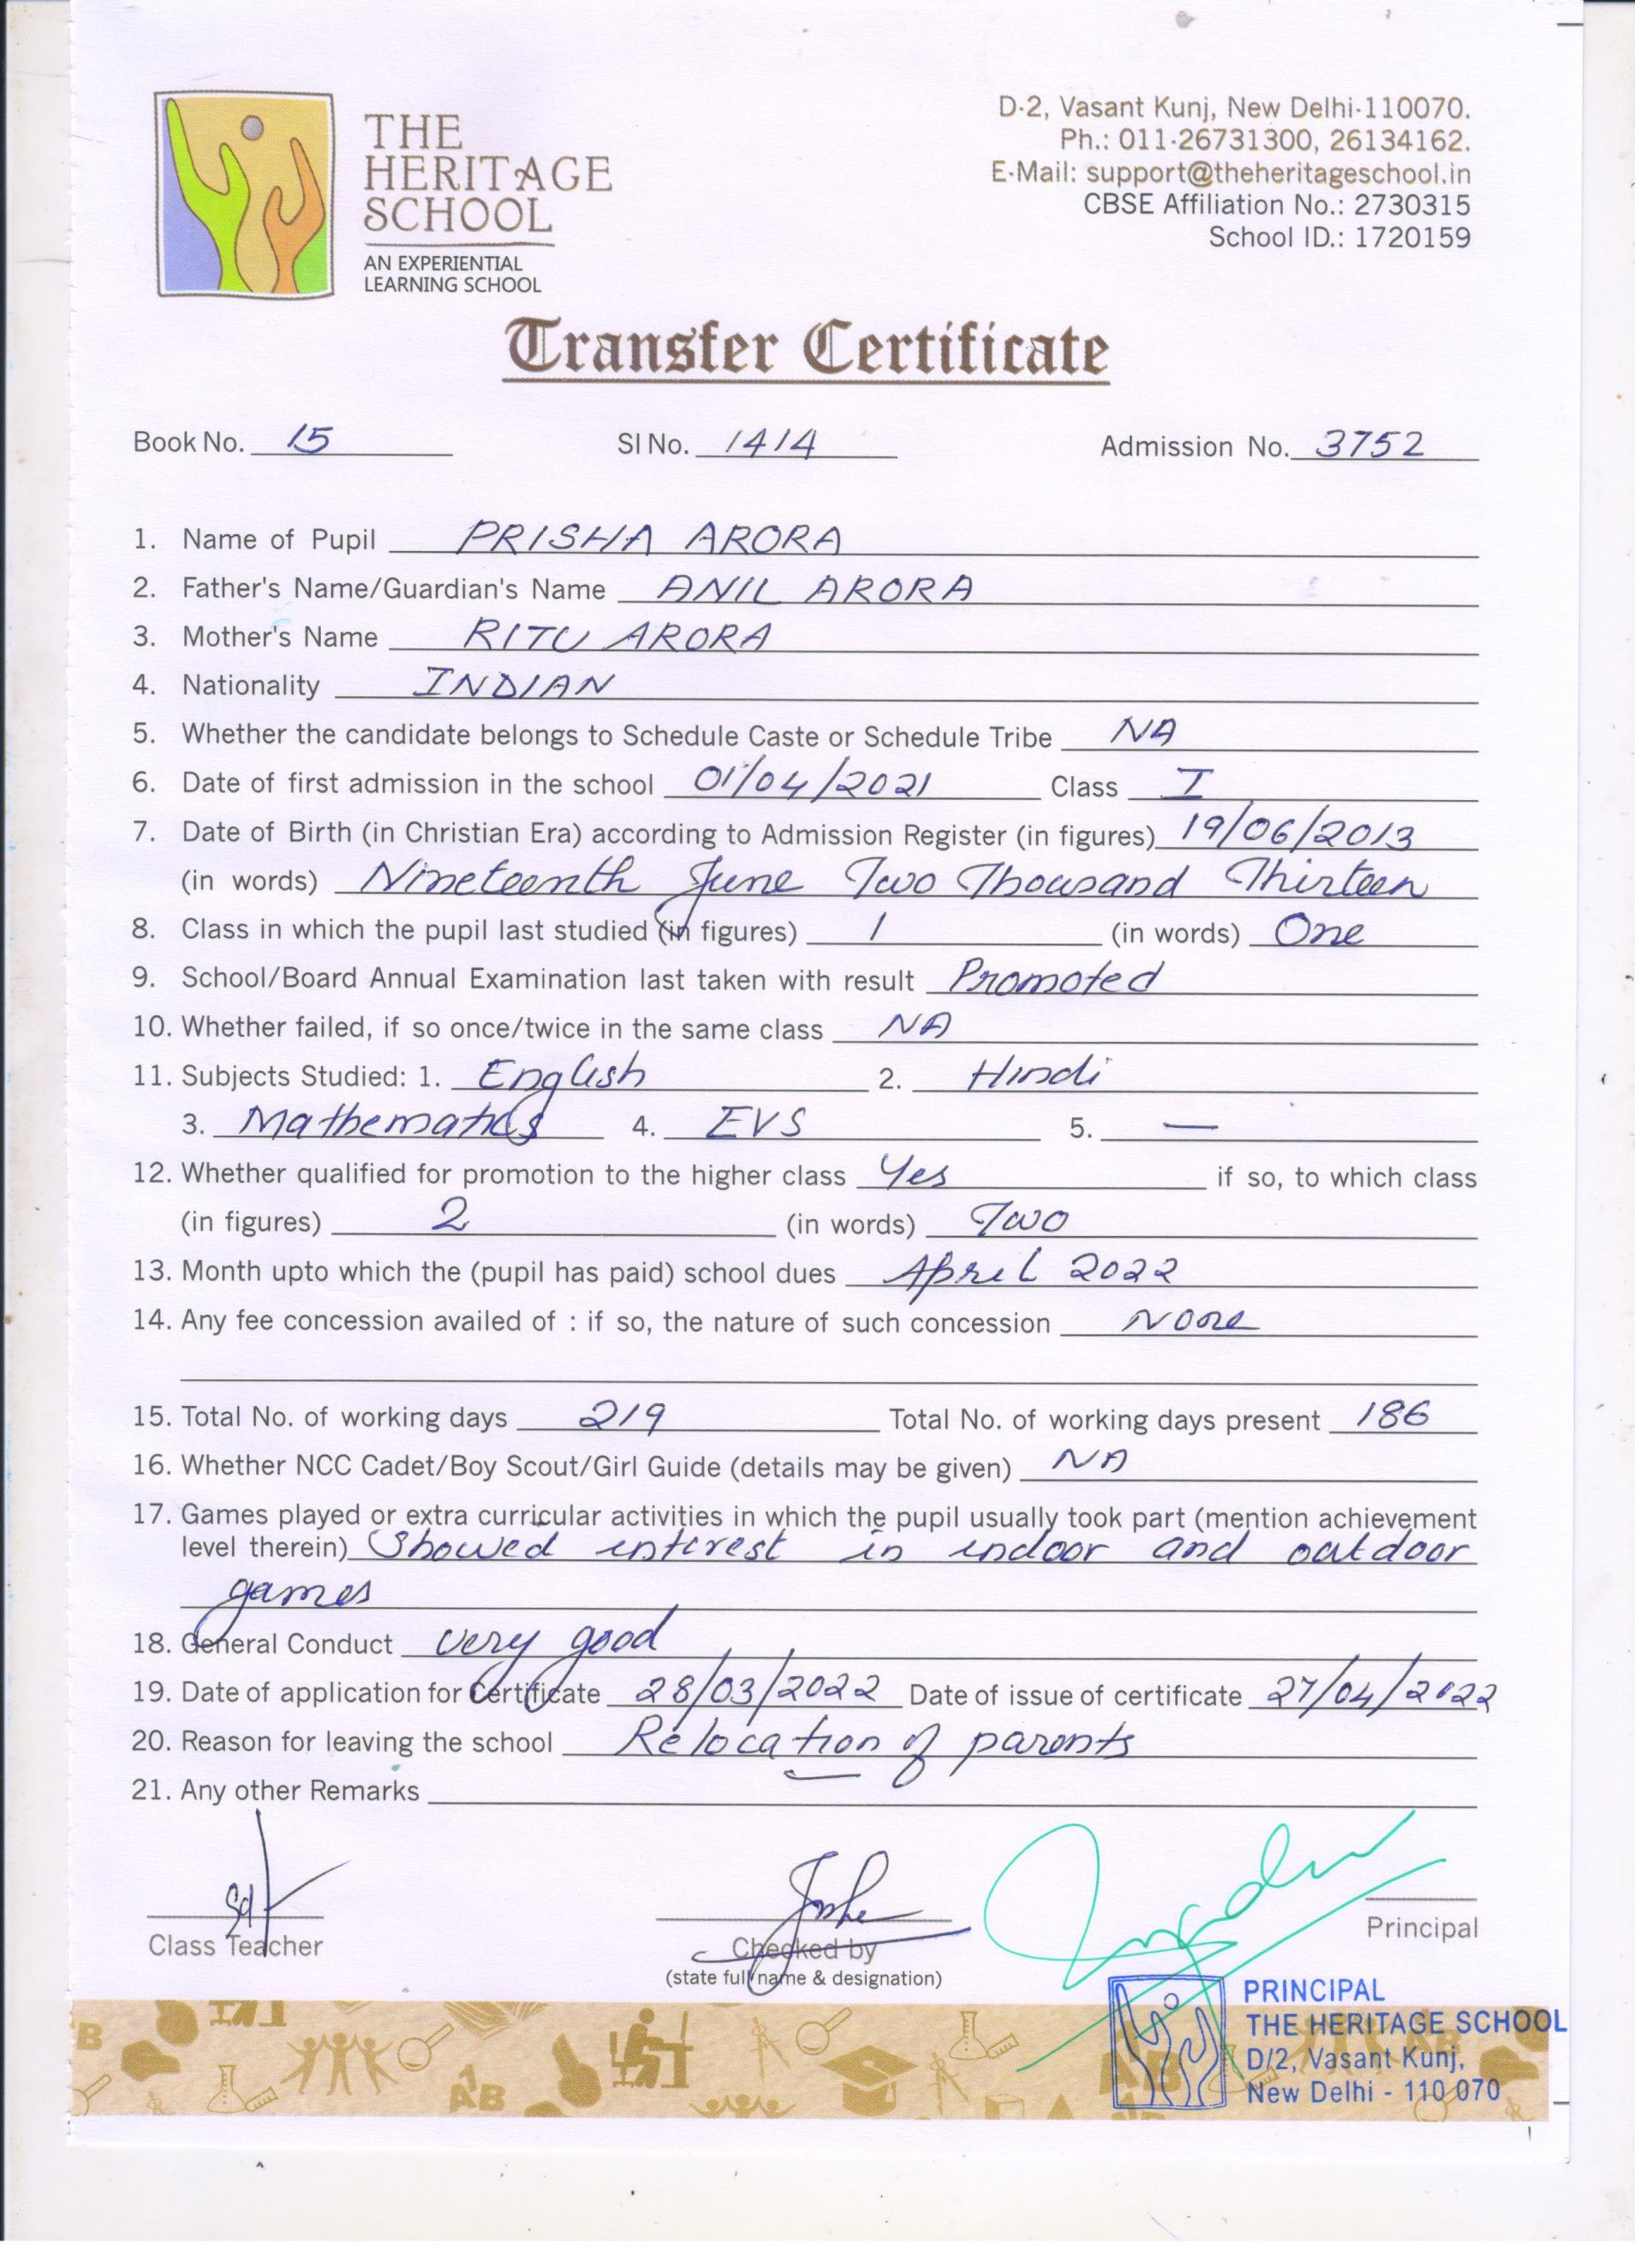 THE
HERITAGE
SCHOOL
AN EXPERIENTIAL
LEARNING SCHOOL
D-2, Vasant Kunj, New Delhi-110070.
Ph.: 011-26731300, 26134162.
E-Mail: support@theheritageschool.in
CBSE Affiliation No.: 2730315
School ID.: 1720159
Transfer Certificate
Book No. 15 Sl No. 1414 Admission No. 3752
1. Name of Pupil PRISHA ARORA
2. Father's Name/Guardian's Name ANIL ARORA
3. Mother's Name RITU ARORA
4. Nationality INDIAN
5. Whether the candidate belongs to Schedule Caste or Schedule Tribe NA
6. Date of first admission in the school 01/04/2021 Class I
7. Date of Birth (in Christian Era) according to Admission Register (in figures) 19/06/2013
(in words) Nineteenth June Two Thousand Thirteen
8. Class in which the pupil last studied (in figures) 1 (in words) One
9. School/Board Annual Examination last taken with result Promoted
10. Whether failed, if so once/twice in the same class NA
11. Subjects Studied: 1. English 2. Hindi
3. Mathematics 4. EVS 5. —
12. Whether qualified for promotion to the higher class Yes if so, to which class
(in figures) 2 (in words) Two
13. Month upto which the (pupil has paid) school dues April 2022
14. Any fee concession availed of : if so, the nature of such concession None
15. Total No. of working days 219 Total No. of working days present 186
16. Whether NCC Cadet/Boy Scout/Girl Guide (details may be given) NA
17. Games played or extra curricular activities in which the pupil usually took part (mention achievement
level therein) Showed interest in indoor and outdoor
games
18. General Conduct very good
19. Date of application for Certificate 28/03/2022 Date of issue of certificate 27/04/2022
20. Reason for leaving the school Relocation of parents
21. Any other Remarks
Class Teacher
Checked by
(state full name & designation)
Principal
PRINCIPAL
THE HERITAGE SCHOOL
D/2, Vasant Kunj,
New Delhi - 110 070